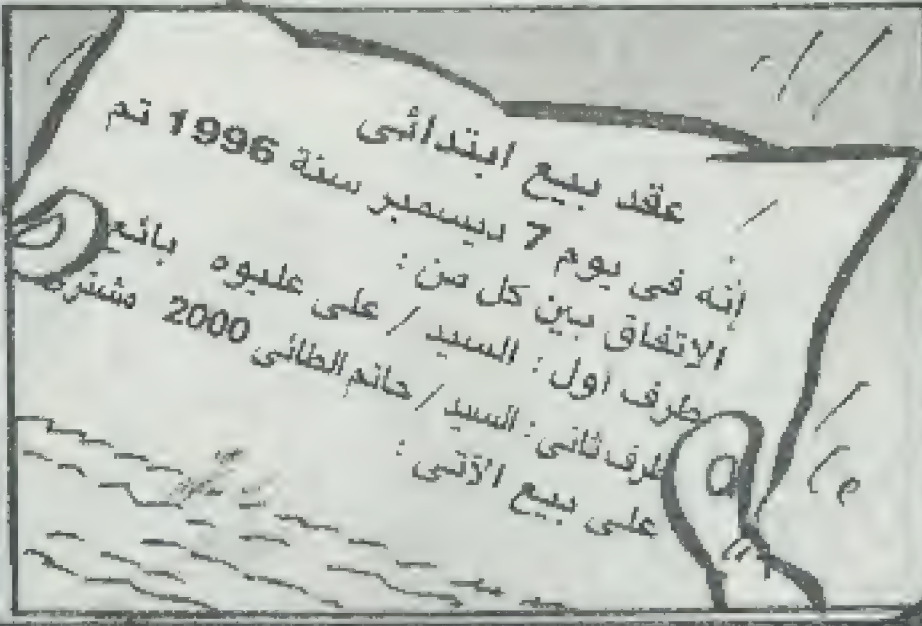 عقد بيع ابتدائى
إنه فى يوم 7 ديسمبر سنة 1996 تم
الاتفاق بين كل من :
طرف أول : السيد / على عليوه بائع
طرف ثانى : السيد / حاتم الطائى 2000 مشترى
على بيع الآتى :